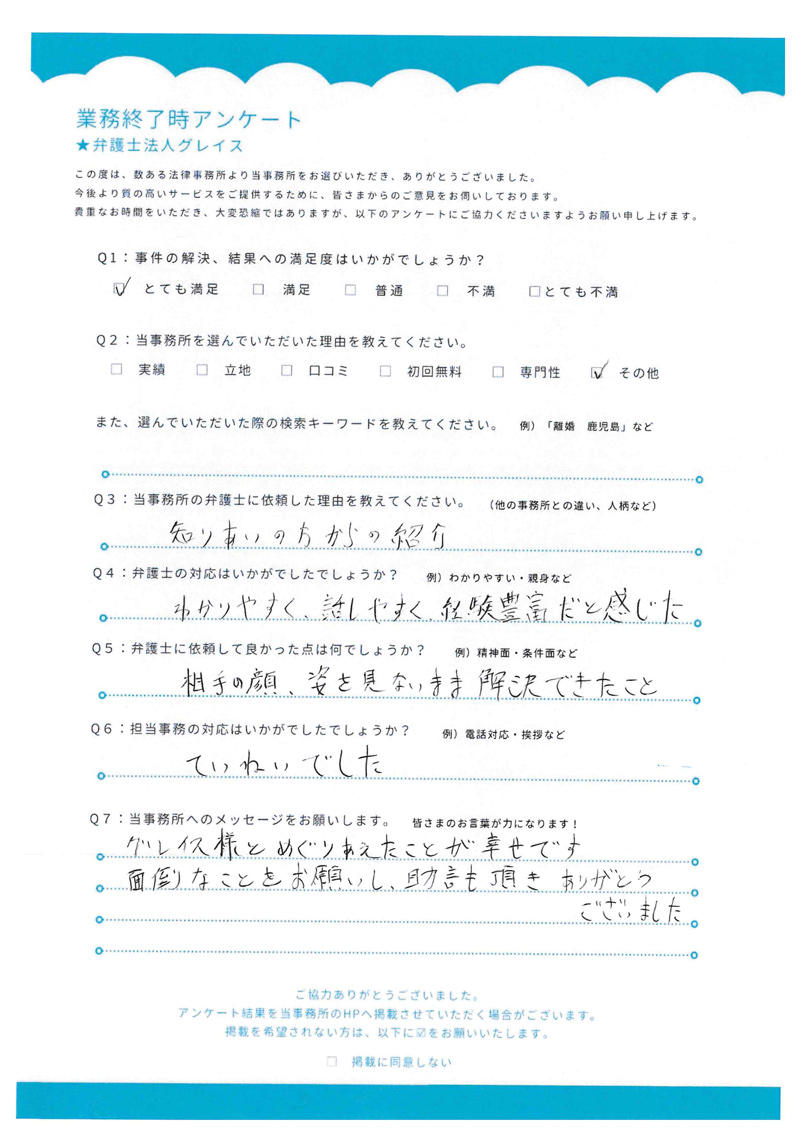 業務終了時アンケート
★弁護士法人グレイス
この度は、数ある法律事務所より当事務所をお選びいただき、ありがとうございました。
今後より質の高いサービスをご提供するために、皆さまからのご意見をお伺いしております。
貴重なお時間をいただき、大変恐縮ではありますが、以下のアンケートにご協力くださいますようお願い申し上げます。
Q1：事件の解決、結果への満足度はいかがでしょうか？
☑ とても満足 □ 満足 □ 普通 □ 不満 □とても不満
Q2：当事務所を選んでいただいた理由を教えてください。
□ 実績 □ 立地 □ 口コミ □ 初回無料 □ 専門性 ☑ その他
また、選んでいただいた際の検索キーワードを教えてください。 例）「離婚 鹿児島」など
Q3：当事務所の弁護士に依頼した理由を教えてください。 （他の事務所との違い、人柄など）
知りあいの方からの紹介
Q4：弁護士の対応はいかがでしたでしょうか？ 例）わかりやすい・親身など
わかりやすく、話しやすく、経験豊富だと感じた
Q5：弁護士に依頼して良かった点は何でしょうか？ 例）精神面・条件面など
相手の顔、姿を見ないまま解決できたこと
Q6：担当事務の対応はいかがでしたでしょうか？ 例）電話対応・挨拶など
ていねいでした
Q7：当事務所へのメッセージをお願いします。 皆さまのお言葉が力になります！
グレイス様とめぐりあえたことが幸せです
面倒なことをお願いし、助言も頂きありがとう
ございました
ご協力ありがとうございました。
アンケート結果を当事務所のHPへ掲載させていただく場合がございます。
掲載を希望されない方は、以下に☑をお願いいたします。
□ 掲載に同意しない